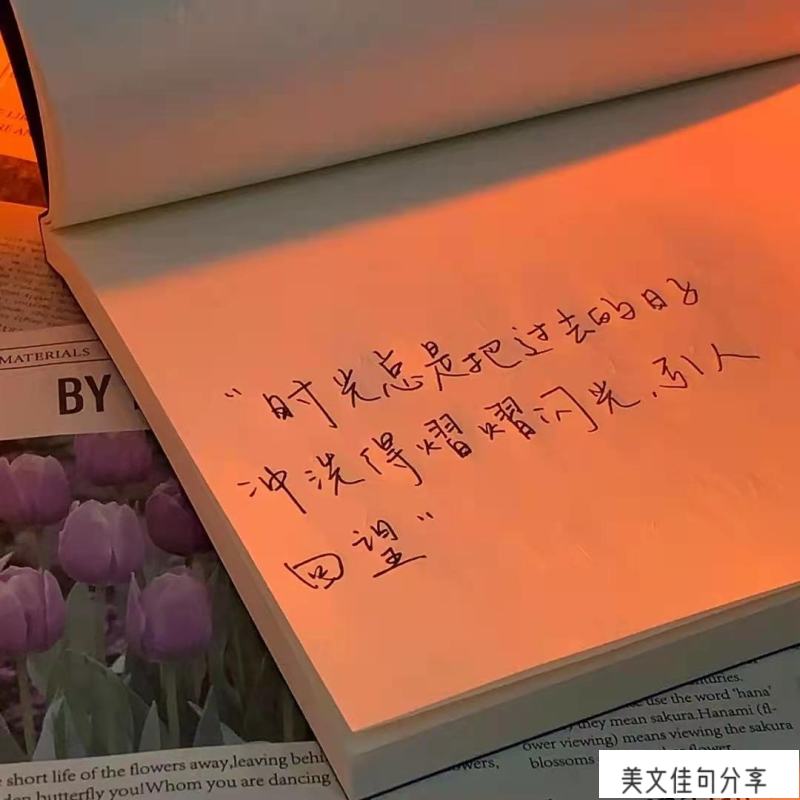 MATERIALS
BY
“时光总是把过去的日子
冲洗得熠熠闪光,引人
回望”
short life of the flowers away,leaving behi
butterfly you!Whom you are dancing
use the word 'hana'
they mean sakura.Hanami (fl-
ower viewing) means viewing the sakura
blossoms
flower.
美文佳句分享